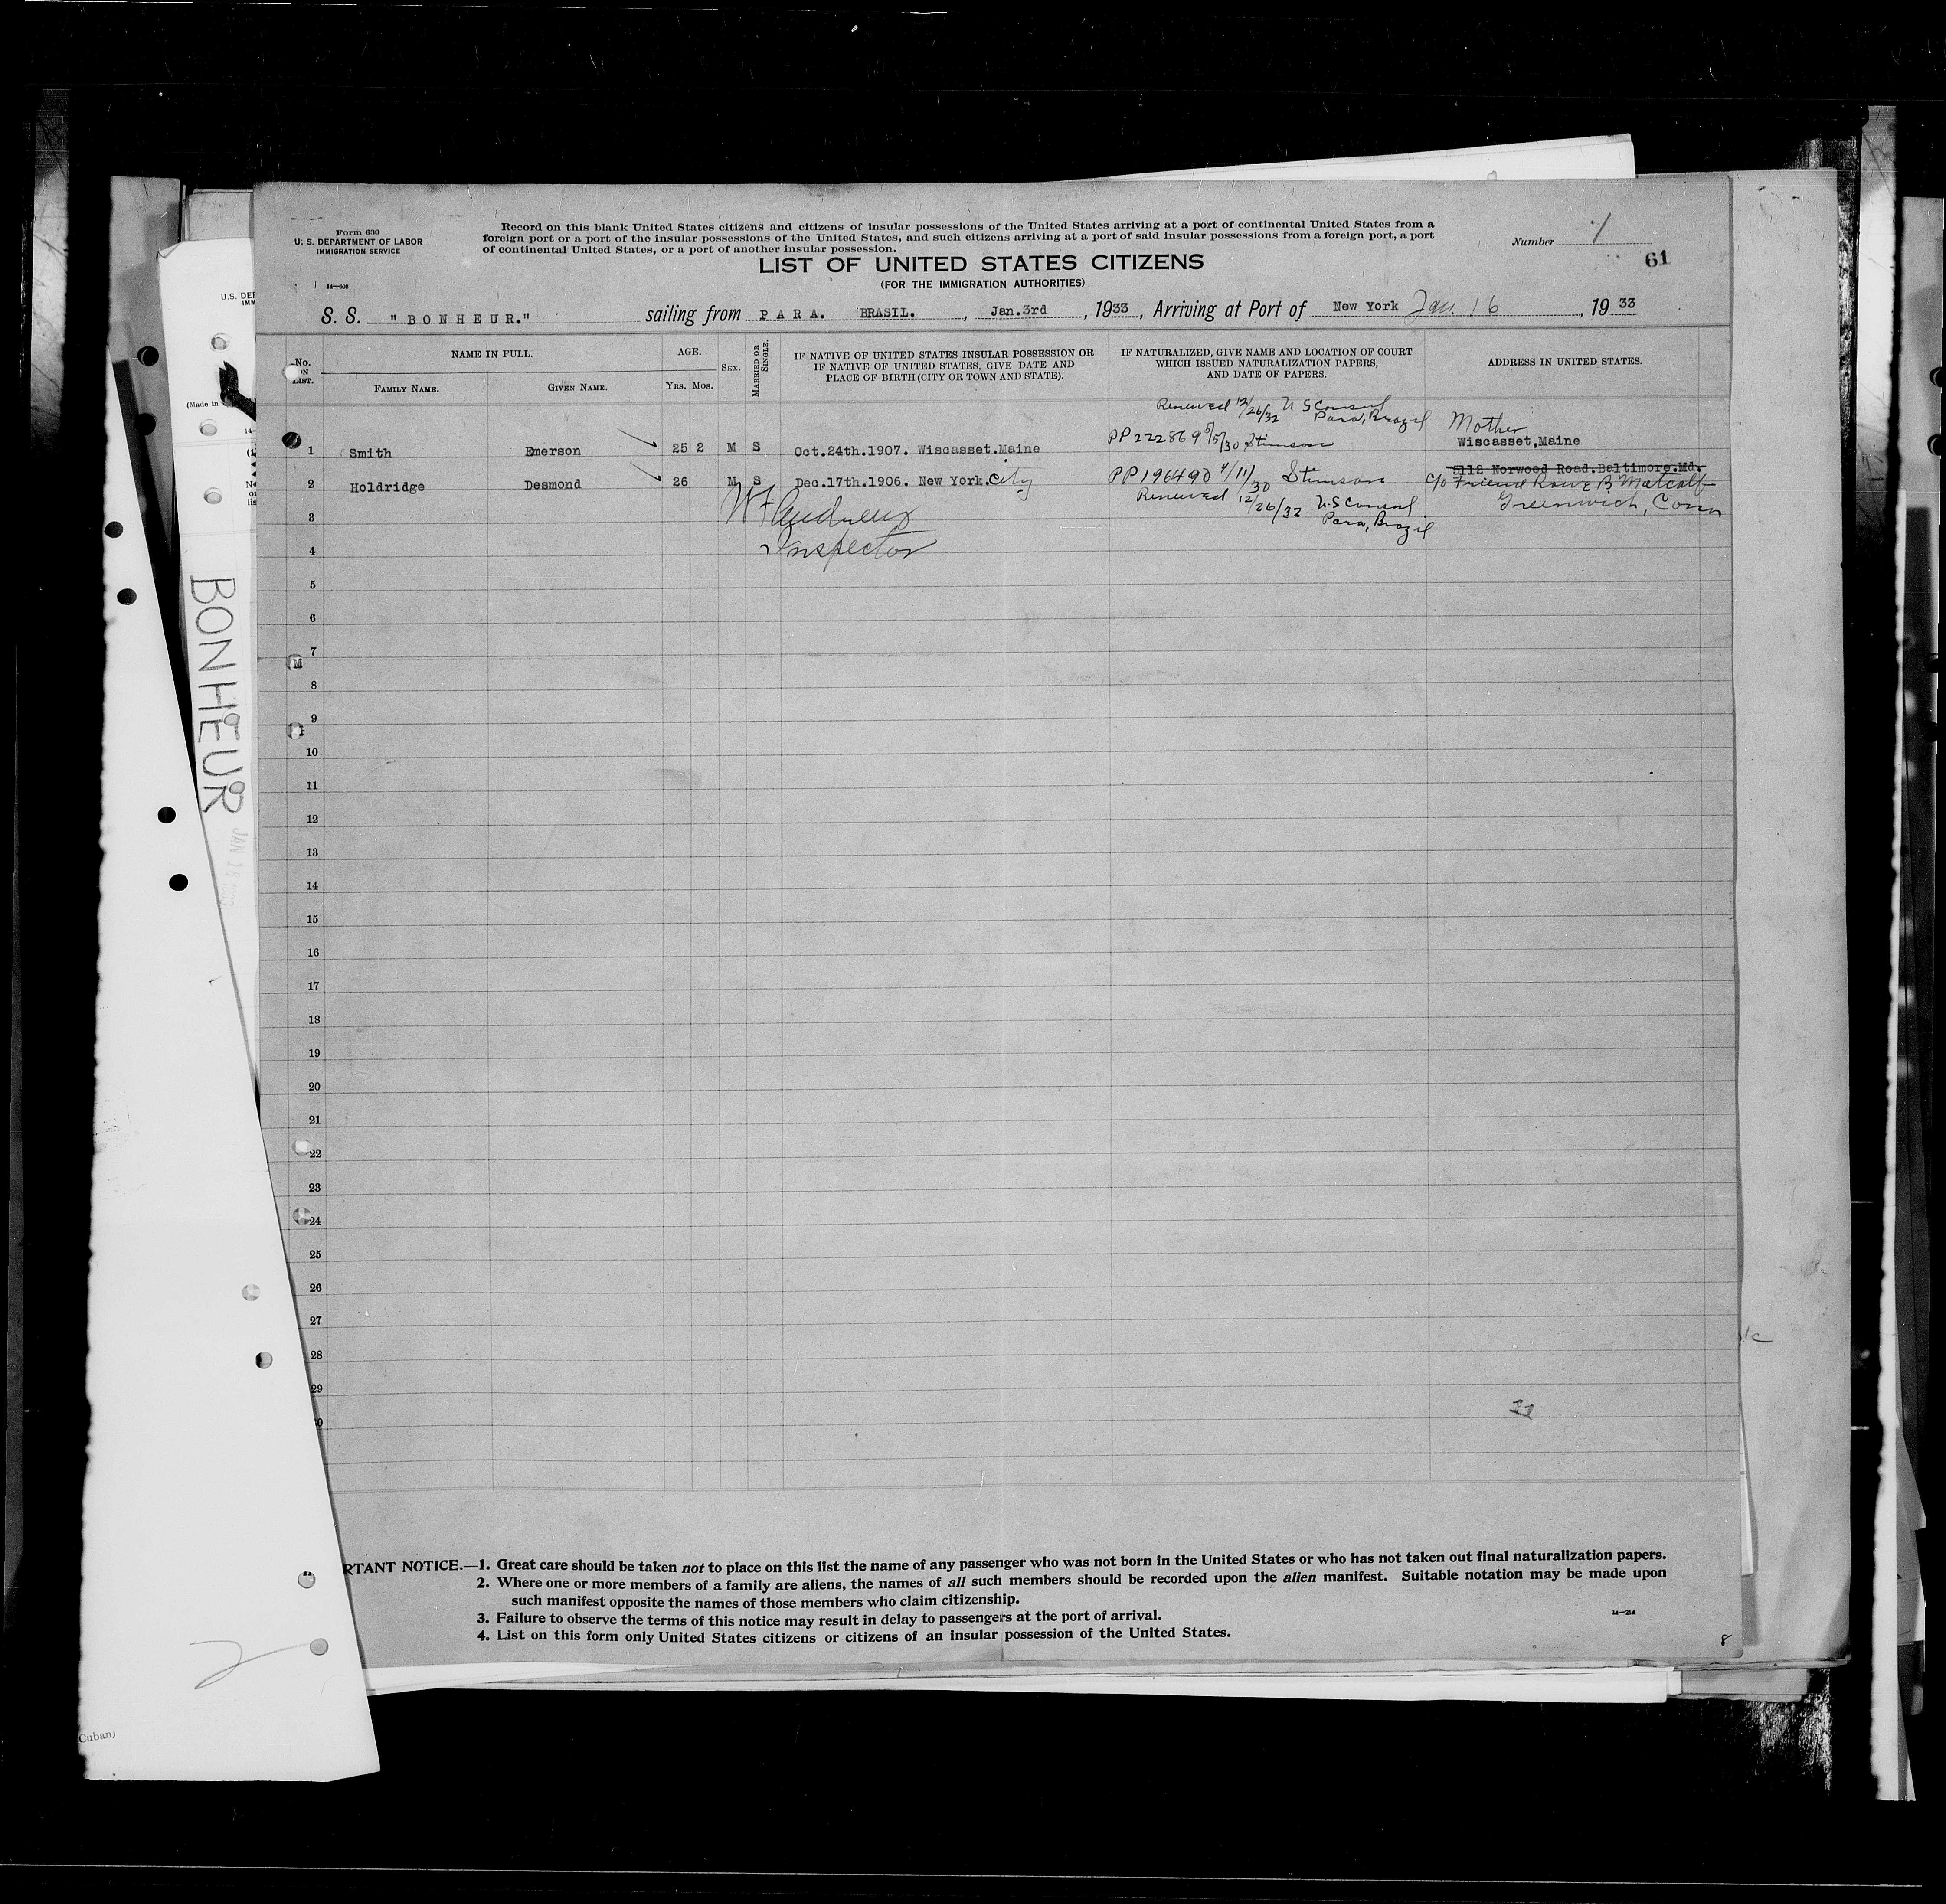 Form 630
U. S. DEPARTMENT OF LABOR
IMMIGRATION SERVICE
14—608
Record on this blank United States citizens and citizens of insular possessions of the United States arriving at a port of continental United States from a
foreign port or a port of the insular possessions of the United States, and such citizens arriving at a port of said insular possessions from a foreign port, a port
of continental United States, or a port of another insular possession.
Number 1
61
LIST OF UNITED STATES CITIZENS
(FOR THE IMMIGRATION AUTHORITIES)
S. S. "BONHEUR." sailing from PARA. BRASIL. , Jan.3rd , 1933 , Arriving at Port of New York Jan. 16 , 1933
No. ON LIST.
NAME IN FULL.
FAMILY NAME.
GIVEN NAME.
AGE.
YRS. MOS.
SEX.
MARRIED OR SINGLE.
IF NATIVE OF UNITED STATES INSULAR POSSESSION OR
IF NATIVE OF UNITED STATES, GIVE DATE AND
PLACE OF BIRTH (CITY OR TOWN AND STATE).
IF NATURALIZED, GIVE NAME AND LOCATION OF COURT
WHICH ISSUED NATURALIZATION PAPERS,
AND DATE OF PAPERS.
ADDRESS IN UNITED STATES.
Renewed 12/26/32 U S Consul
Para, Brazil
Mother
1 Smith Emerson 25 2 M S Oct.24th.1907. Wiscasset.Maine PP 222869 5/5/30 Stimson Wiscasset,Maine
5112 Norwood Road.Baltimore.Md.
2 Holdridge Desmond 26 M S Dec.17th.1906. New York.City PP 196490 4/11/30 Stimson c/o Friend Rowe B Metcalf
Renewed 12/26/32 U.S Consul
Para, Brazil
Greenwich, Conn
3 W F Andrews
4 Inspector
5
6
7
8
9
10
11
12
13
14
15
16
17
18
19
20
21
22
23
24
25
26
27
28
29
0
RTANT NOTICE.—1. Great care should be taken not to place on this list the name of any passenger who was not born in the United States or who has not taken out final naturalization papers.
2. Where one or more members of a family are aliens, the names of all such members should be recorded upon the alien manifest. Suitable notation may be made upon
such manifest opposite the names of those members who claim citizenship.
3. Failure to observe the terms of this notice may result in delay to passengers at the port of arrival.
4. List on this form only United States citizens or citizens of an insular possession of the United States.
14—214
8
U.S. DEP
IMM
(Made in
14-
BONHEUR
2
Cuban)